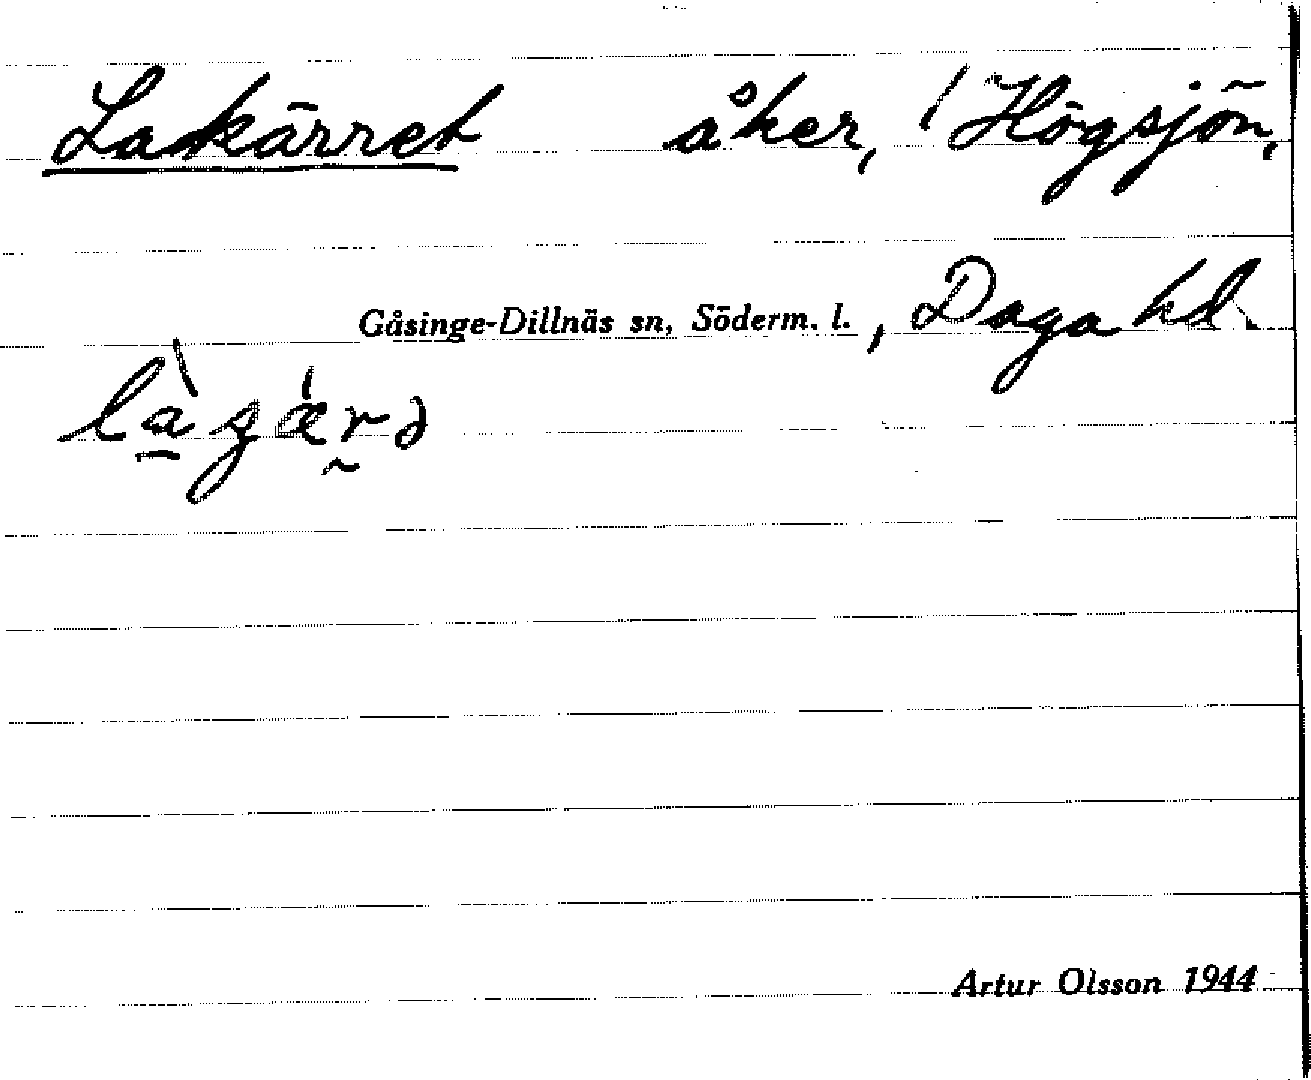 Ladkärret åker, / Högsjön,
Gåsinge-Dillnäs sn, Söderm. l. , Daga hd
Artur Olsson 1944